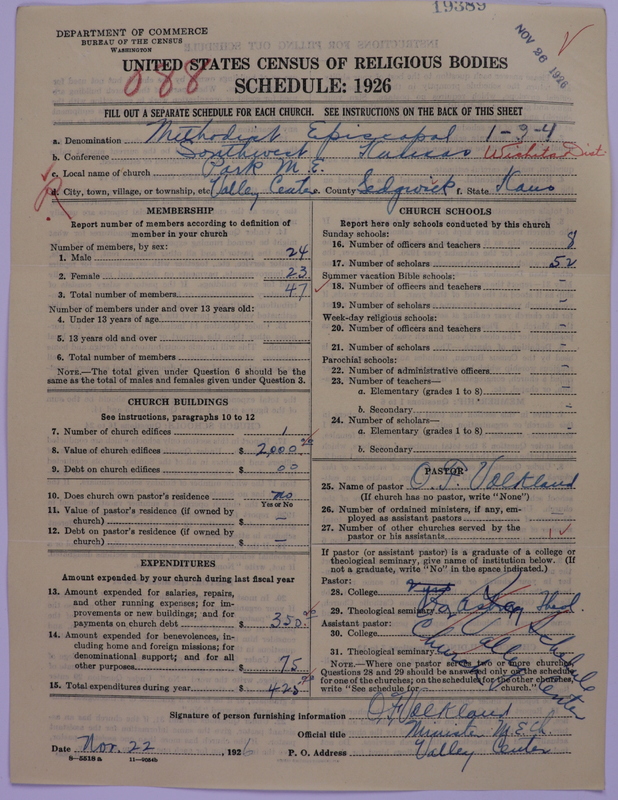 19389
NOV 26 1926
DEPARTMENT OF COMMERCE
BUREAU OF THE CENSUS
WASHINGTON
UNITED STATES CENSUS OF RELIGIOUS BODIES
088
SCHEDULE: 1926
FILL OUT A SEPARATE SCHEDULE FOR EACH CHURCH. SEE INSTRUCTIONS ON THE BACK OF THIS SHEET
a. Denomination Methodist Episcopal 1-3-4
b. Conference Southwest Kansas Wichita Dist.
c. Local name of church Park M.E.
d. City, town, village, or township, etc. Valley Center e. County Sedgwick f. State Kans
MEMBERSHIP
Report number of members according to definition of member in your church
Number of members, by sex:
1. Male 24
2. Female 23
3. Total number of members 47
Number of members under and over 13 years old:
4. Under 13 years of age
5. 13 years old and over
6. Total number of members
NOTE.—The total given under Question 6 should be the same as the total of males and females given under Question 3.
CHURCH BUILDINGS
See instructions, paragraphs 10 to 12
7. Number of church edifices 1
8. Value of church edifices $ 2,000
9. Debt on church edifices $ 00
10. Does church own pastor's residence no
Yes or No
11. Value of pastor's residence (if owned by church) $ —
12. Debt on pastor's residence (if owned by church) $ —
EXPENDITURES
Amount expended by your church during last fiscal year
13. Amount expended for salaries, repairs, and other running expenses; for improvements or new buildings; and for payments on church debt $ 350
14. Amount expended for benevolences, including home and foreign missions; for denominational support; and for all other purposes $ 75
15. Total expenditures during year $ 425
CHURCH SCHOOLS
Report here only schools conducted by this church
Sunday schools:
16. Number of officers and teachers 8
17. Number of scholars 52
Summer vacation Bible schools:
18. Number of officers and teachers —
19. Number of scholars —
Week-day religious schools:
20. Number of officers and teachers —
21. Number of scholars —
Parochial schools:
22. Number of administrative officers —
23. Number of teachers—
a. Elementary (grades 1 to 8) —
b. Secondary —
24. Number of scholars—
a. Elementary (grades 1 to 8) —
b. Secondary —
PASTOR
25. Name of pastor Volkland
(If church has no pastor, write "None")
26. Number of ordained ministers, if any, employed as assistant pastors —
27. Number of other churches served by the pastor or his assistants 1
If pastor (or assistant pastor) is a graduate of a college or theological seminary, give name of institution below. (If not a graduate, write "No" in the space indicated.)
Pastor:
28. College
29. Theological seminary
Assistant pastor:
30. College
31. Theological seminary
Schedule
Church
Center
NOTE.—Where one pastor serves two or more churches, Questions 28 and 29 should be answered only on the schedule for one of the churches; on the schedules for the other churches, write "See schedule for — church."
Signature of person furnishing information Volkland
Official title Minister M.E.Ch.
Date Nov. 22, 1926 P. O. Address Valley Center
8—5518 a 11—9054b